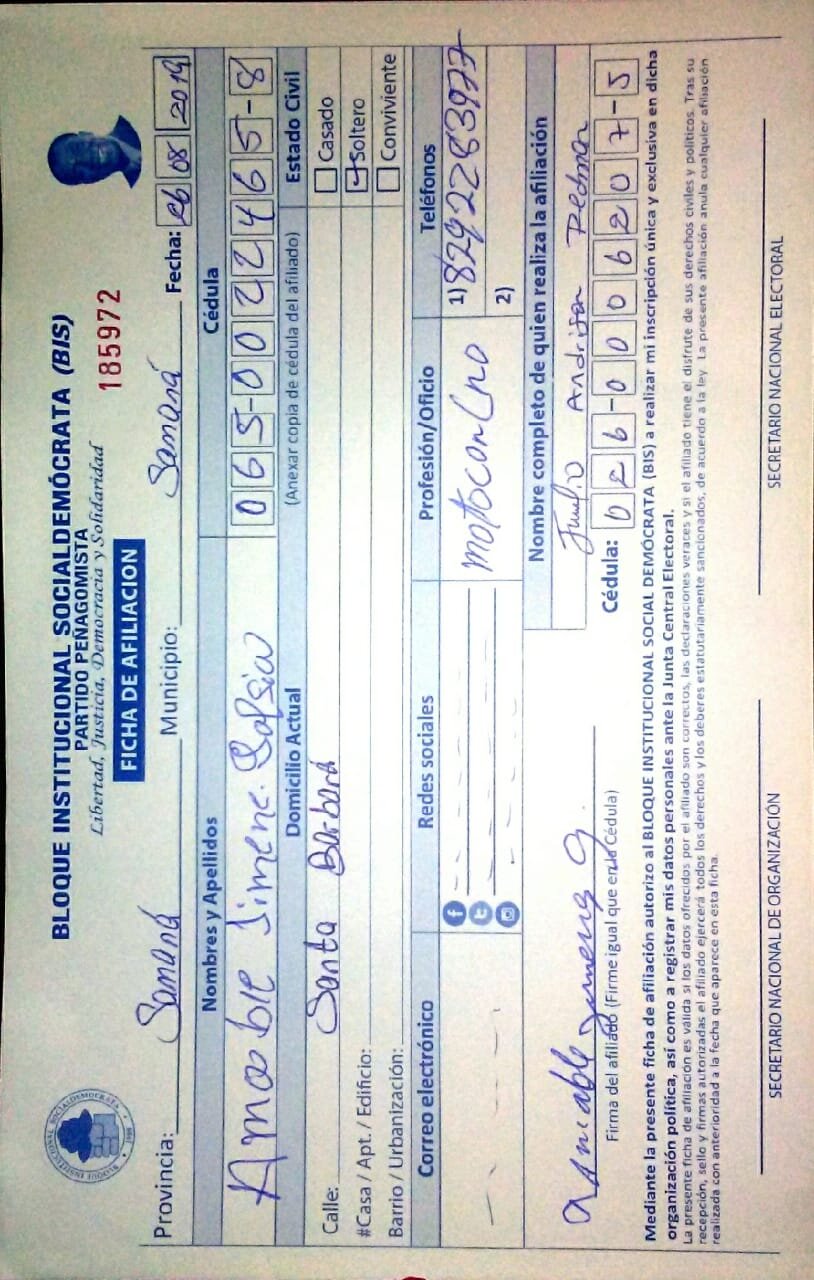 BLOQUE INSTITUCIONAL SOCIALDEMÓCRATA (BIS)
PARTIDO PEÑAGOMISTA
Libertad, Justicia, Democracia y Solidaridad
FICHA DE AFILIACION
185972
Provincia: Samaná Municipio: Samaná Fecha: 26 08 2019
Nombres y Apellidos Cédula
Amable Jimene. 065-0022465-8
Domicilio Actual (Anexar copia de cédula del afiliado) Estado Civil
Calle: Santa Barbara
Casado
#Casa / Apt. / Edificio:
Soltero
Barrio / Urbanización:
Conviviente
Correo electrónico Redes sociales Profesión/Oficio Teléfonos
motoconcho 1) 8292283977
2)
Nombre completo de quien realiza la afiliación
Junio Andrison Redman
Cédula: 026-0006207-5
Amable Jimenes G.
Firma del afiliado (Firme igual que en la Cédula)
Mediante la presente ficha de afiliación autorizo al BLOQUE INSTITUCIONAL SOCIAL DEMÓCRATA (BIS) a realizar mi inscripción única y exclusiva en dicha
organización política, así como a registrar mis datos personales ante la Junta Central Electoral.
La presente ficha de afiliación es válida si los datos ofrecidos por el afiliado son correctos, las declaraciones veraces y si el afiliado tiene el disfrute de sus derechos civiles y políticos. Tras su
recepción, sello y firmas autorizadas el afiliado ejercerá todos los derechos y los deberes estatutariamente sancionados, de acuerdo a la ley. La presente afiliación anula cualquier afiliación
realizada con anterioridad a la fecha que aparece en esta ficha.
SECRETARIO NACIONAL DE ORGANIZACIÓN
SECRETARIO NACIONAL ELECTORAL